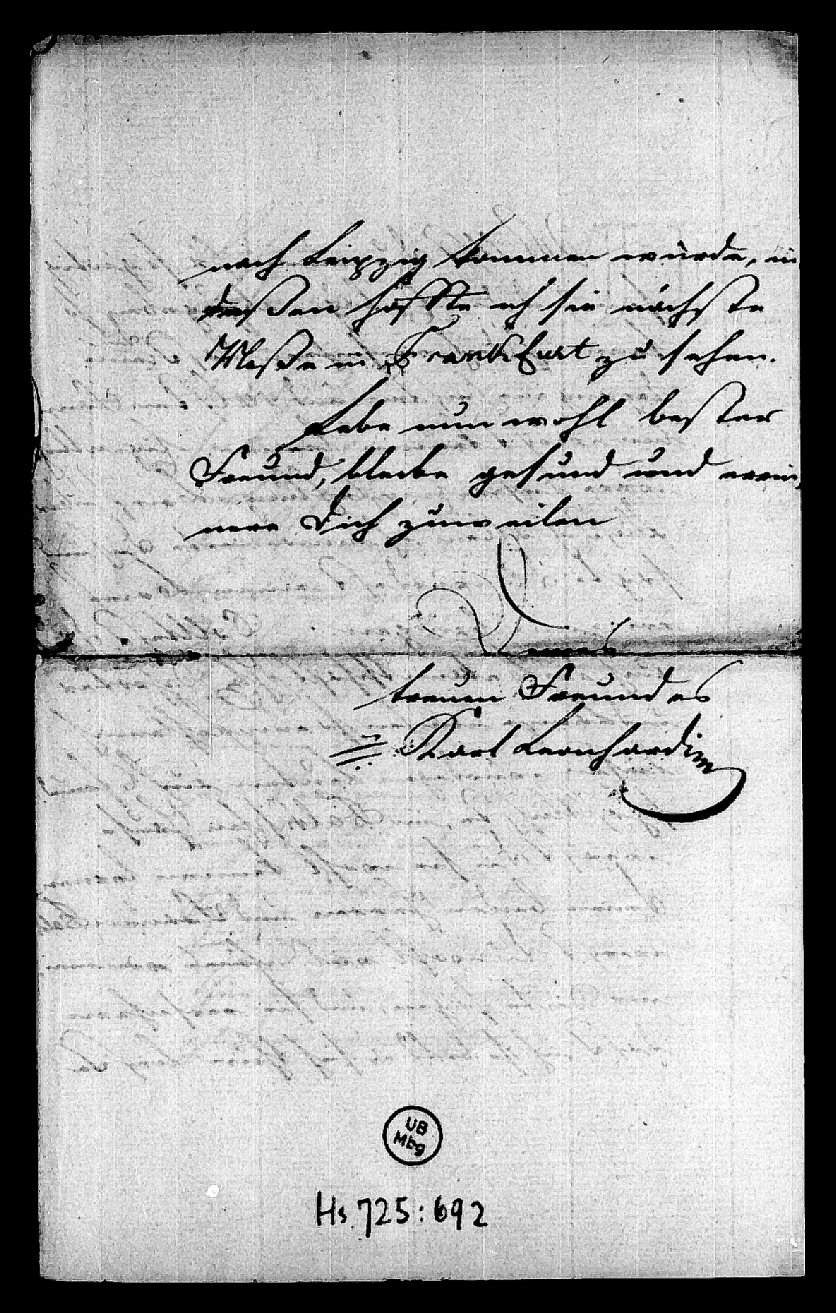 nach Leipzig kommen würde, in
deßen hoffte ich sie nächste
Meße in Frankfurt zu sehen.
Lebe nun wohl bester
Freund, bleibe gesund und erin,
nere Dich zuweilen
Deines
treuen Freundes
Karl Leonhardi
UB
Mbg
Hs. 725:692